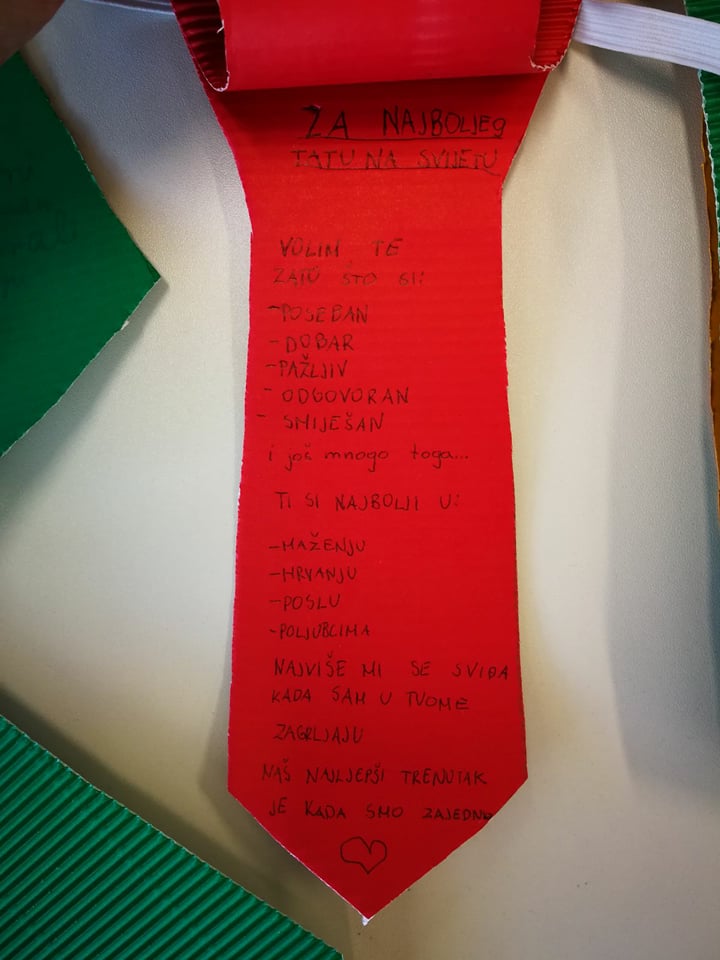 ZA NAJBOLJEG
TATU NA SVIJETU
VOLIM TE
ZATO ŠTO SI:
-POSEBAN
-DOBAR
-PAŽLJIV
- ODGOVORAN
- SMIJEŠAN
i još mnogo toga...
TI SI NAJBOLJI U:
-MAŽENJU
-HRVANJU
-POSLU
-POLJUBCIMA
NAJVIŠE MI SE SVIĐA
KADA SAM U TVOME
ZAGRLJAJU
NAŠ NAJLJEPŠI TRENUTAK
JE KADA SMO ZAJEDNO